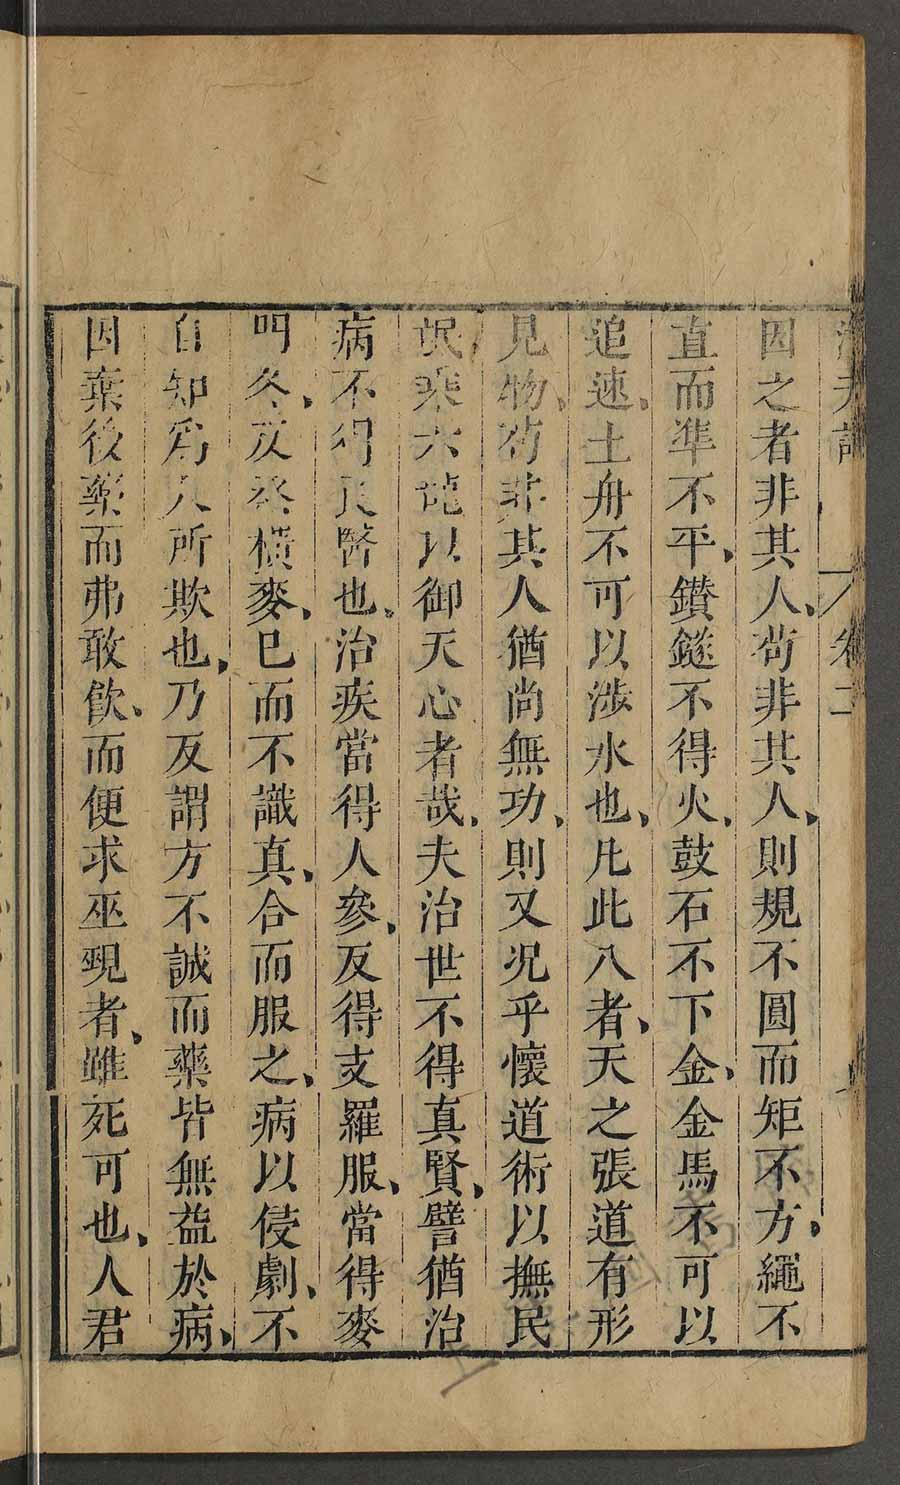 卷二
因之者非其人、苟非其人、則規不圓而矩不方、繩不
直而準不平、鑽鐩不得火、鼓石不下金、金馬不可以
追速、土舟不可以涉水也、凡此八者、天之張道有形
見物、苟非其人猶尚無功、則又况乎懷道術以撫民
氓乘六龍以御天心者哉、夫治世不得真賢、譬猶治
病不得良醫也、治疾當得人參、反得支羅服、當得麥
門冬、反烝橫麥、巳而不識真、合而服之、病以侵劇、不
自知爲人所欺也、乃反謂方不誠而藥皆無益於病、
因棄後藥而弗敢飲、而便求巫覡者、雖死可也、人君